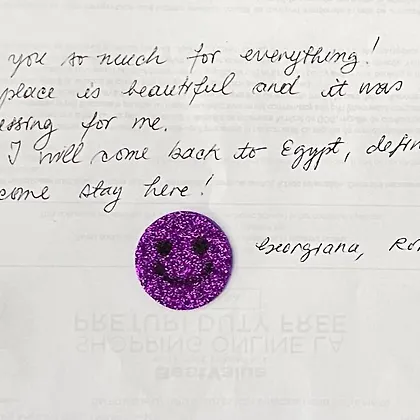 you so much for everything!
place is beautiful and it was
essing for me.
I will come back to Egypt, defin
come stay here!
Georgiana, Ro
PRETURI DUTY FREE
SHOPPING ONLINE LA
BestValue